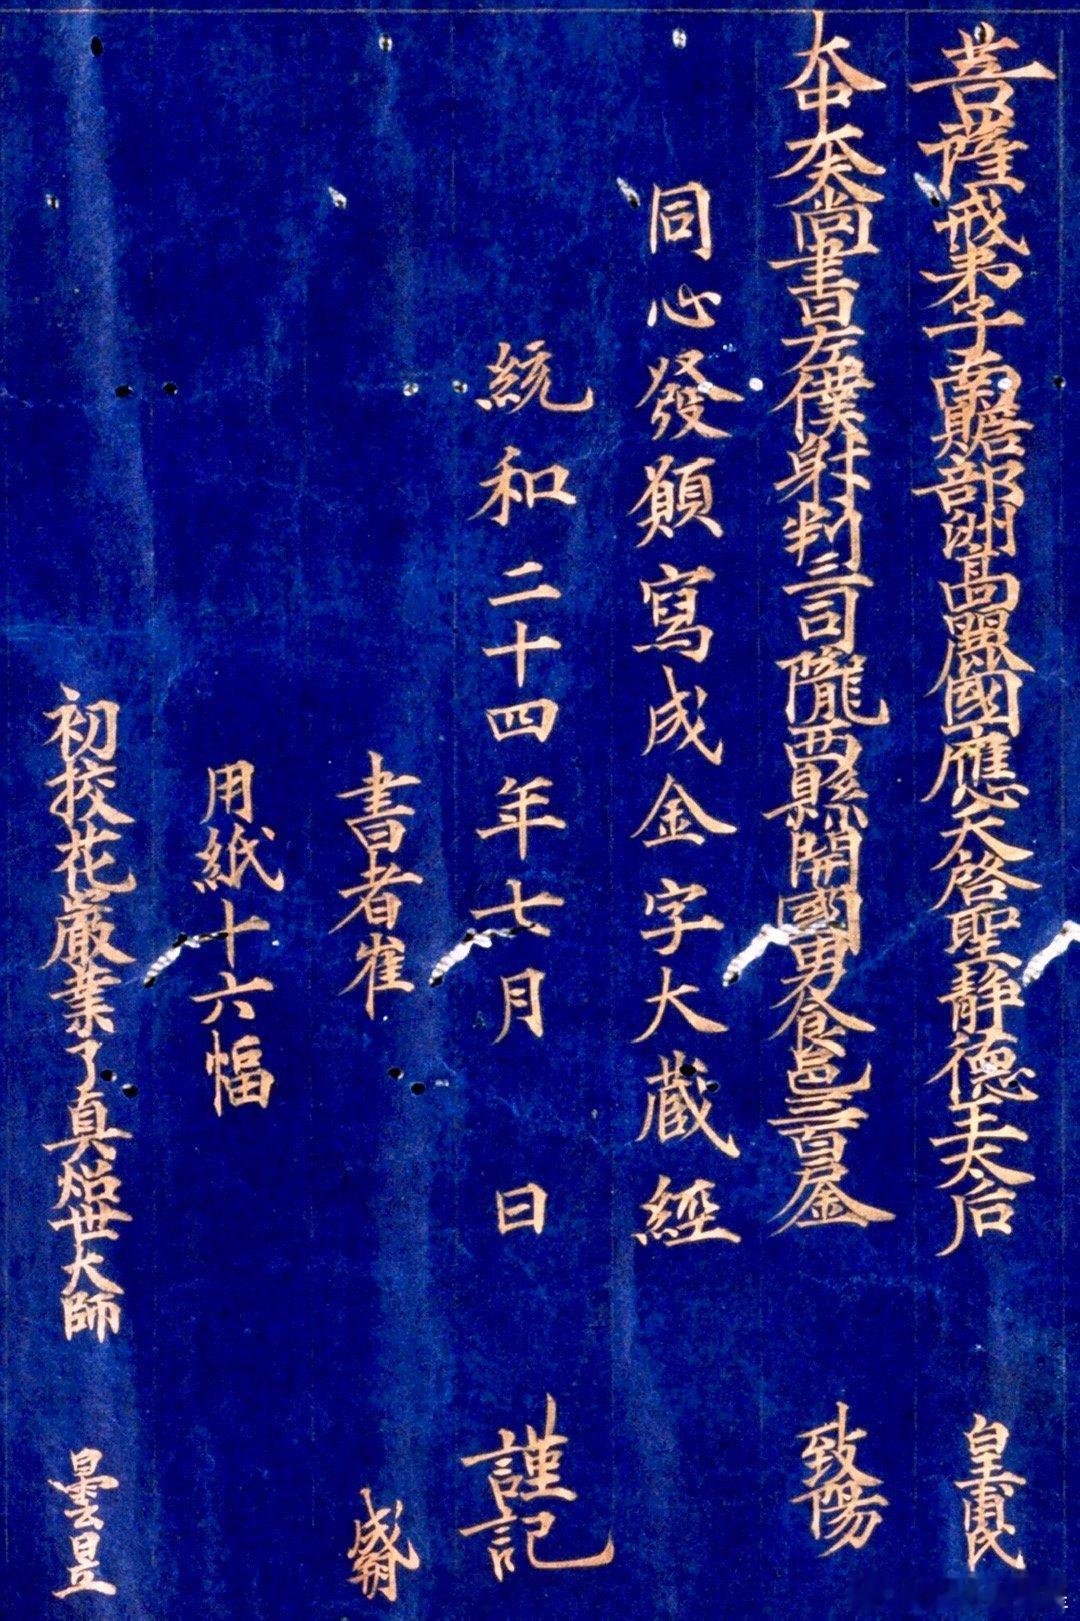 菩薩戒弟子南贍部洲高麗國應天啓聖靜德王太后 皇甫氏
大中大夫尚書左僕射判三司隴西縣開國男食邑三百金 致陽
同心發願寫成金字大藏經
統和二十四年七月 日 謹記
書者崔 成朔
用紙十六幅
初校花嚴業了真炤世大師 曇昱